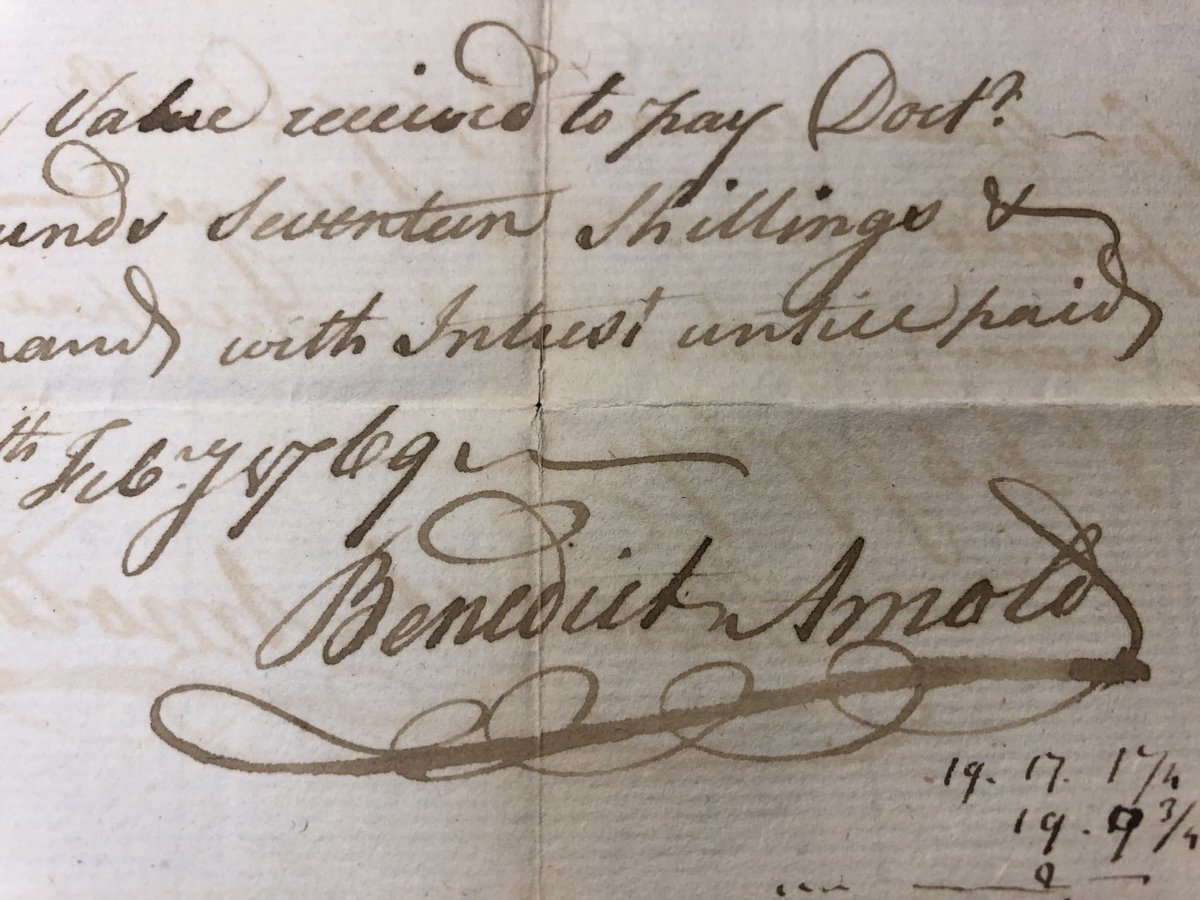 Value received to pay Doctr.
unds Seventeen Shillings &
mand with Intrest untill paid
th Febry. 1769
Benedict Arnold
19. 17. 1 3/4
19. 9 3/4